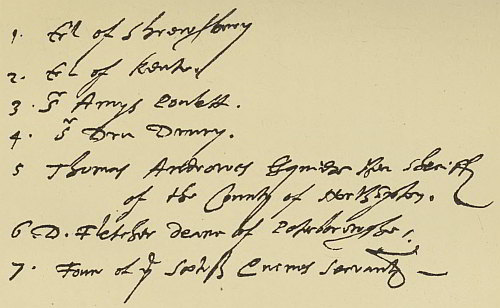 1. Erl of Shrewsbury
2. Erl of Kente.
3. Sr Amys Poulett.
4. Sr Dru Drury.
5 Thomas Androwes Esquier then Sheriff
of the County of Northapton.
6. D. Fletcher deane of Peterboroughe.
7. Foure of ye Scotish Quenes Servants